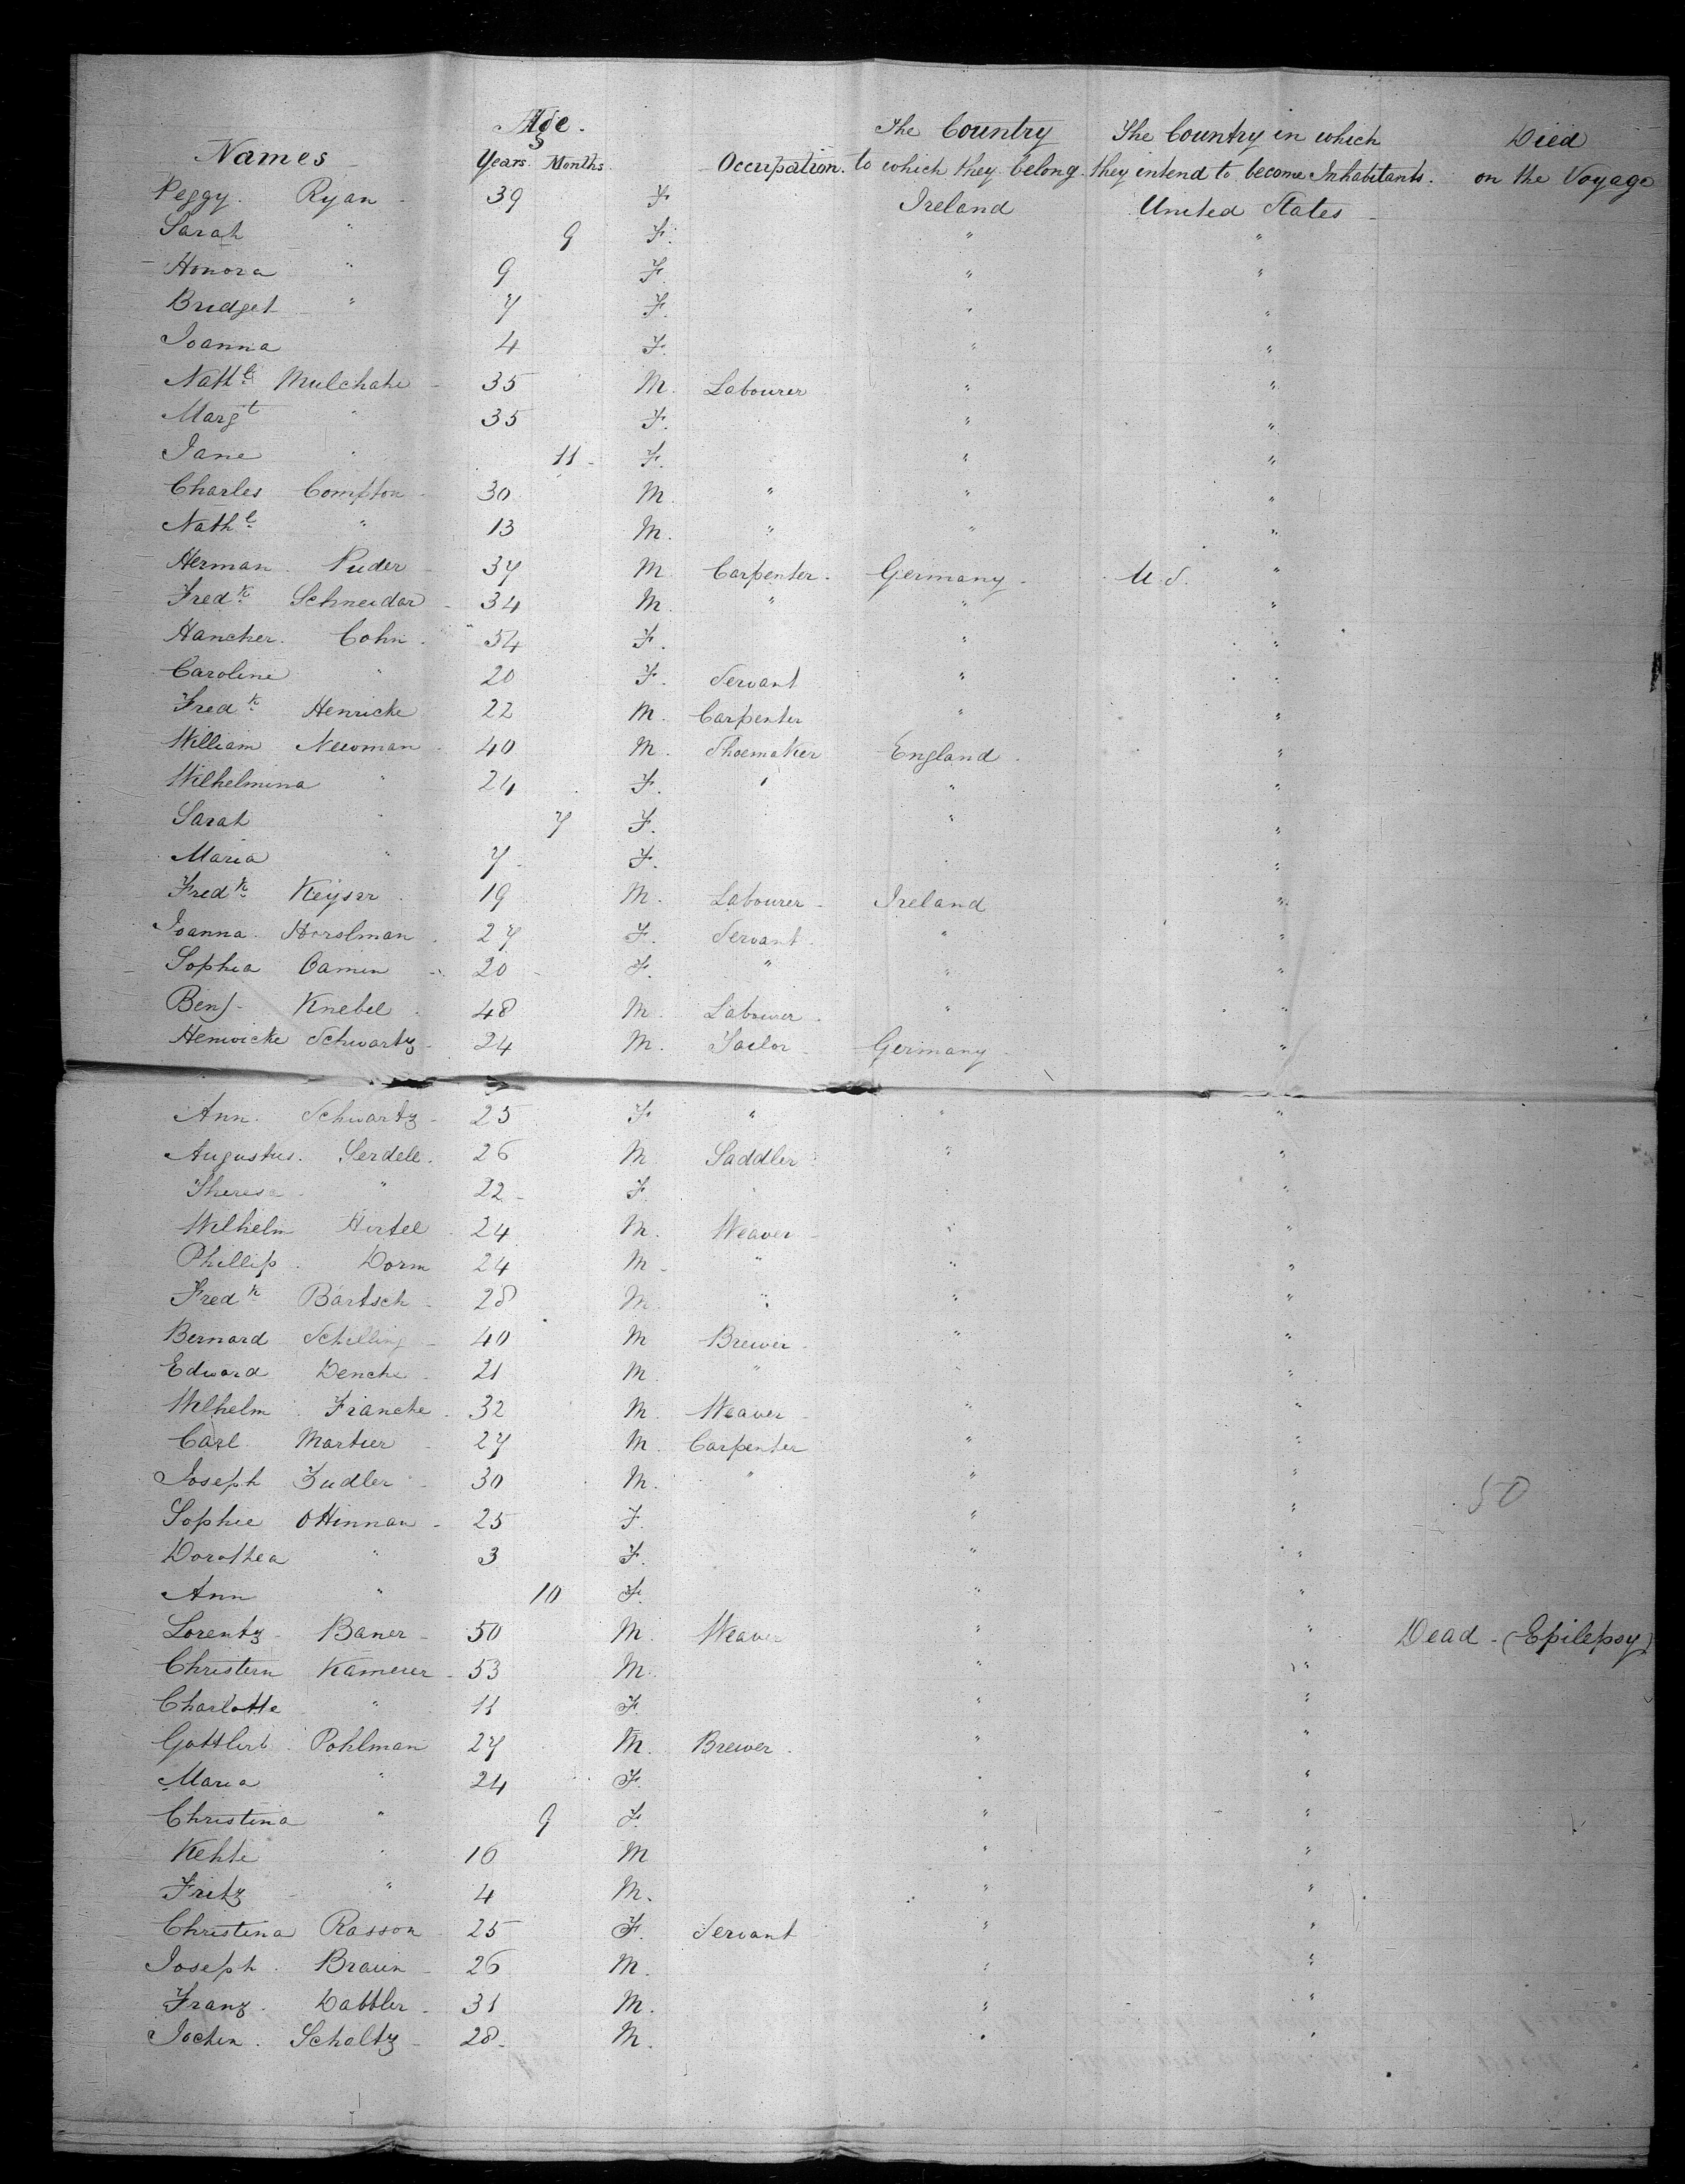 Age.
The Country The Country in which Died
Names Years. Months. Occupation. to which they belong. they intend to become Inhabitants. on the Voyage
Peggy. Ryan - 39 F Ireland United States -
Sarah " 9 F. " "
Honora " 9 F. " "
Bridget " 7 F. " "
Joanna 4 F. " "
Nathl Mulchahe - 35 M. Labourer " "
Margt " 35 F. " "
Jane " 11 - F. " "
Charles Compton - 30 M. " " "
Nathl " 13 M. " " "
Herman. Puder - 37 M. Carpenter. Germany. U S. "
Fredk Schneidar - 34 M. " " "
Hancher. Cohn. 54 F. " "
Caroline " 20 F. Servant " "
Fredk Henricke 22 M. Carpenter " "
William Newman. 40 M. Shoemaker England. "
Wilhelmina " 24 F. " " "
Sarah " 7 F. " "
Maria " 7 - F. " "
Fredk Keyser. 19 M. Labourer - Ireland "
Joanna. Horslman. 27 F. Servant. " "
Sophia Camen - 20 - F. " " "
Benj- Knebel. 48 M. Labourer. " "
Henwicke Schwartz - 24 M. Tailor - Germany - "
Ann. Schwartz - 25 F " " "
Augustus. Serdele. 26 M Saddler " "
Theresa " 22 - F. " " "
Wilhelm Hirtel 24 M. Weaver - " "
Phillip. Dorm 24 M - " " "
Fredk Bartsch - 28 M. " " "
Bernard Schilling - 40 M Brewer - " "
Edward Denche - 21 M. " " "
Wilhelm. Franche. 32 M. Weaver - " "
Carl Martier - 27 M. Carpenter " "
Joseph Zudler - 30 M. " " " 50
Sophie Ottinnan - 25 F. " "
Dorothea " 3 F. " "
Ann " 10 F. " "
Lorentz - Baner - 50 M. Weaver " " Dead - (Epilepsy)
Christern Kamerer - 53 M. " "
Charlotte " 11 F. " "
Gottlieb. Pohlman 27 M. Brewer. " "
Maria " 24 F. " "
Christina " 9 F. " "
Kehle " 16 M " "
Fritz " 4 M. " "
Christina Rasson - 25 F. Servant " "
Joseph. Braun - 26 M. " "
Franz. Dabbler - 31 M. " "
Jochen. Scholtz - 28 - M. " "